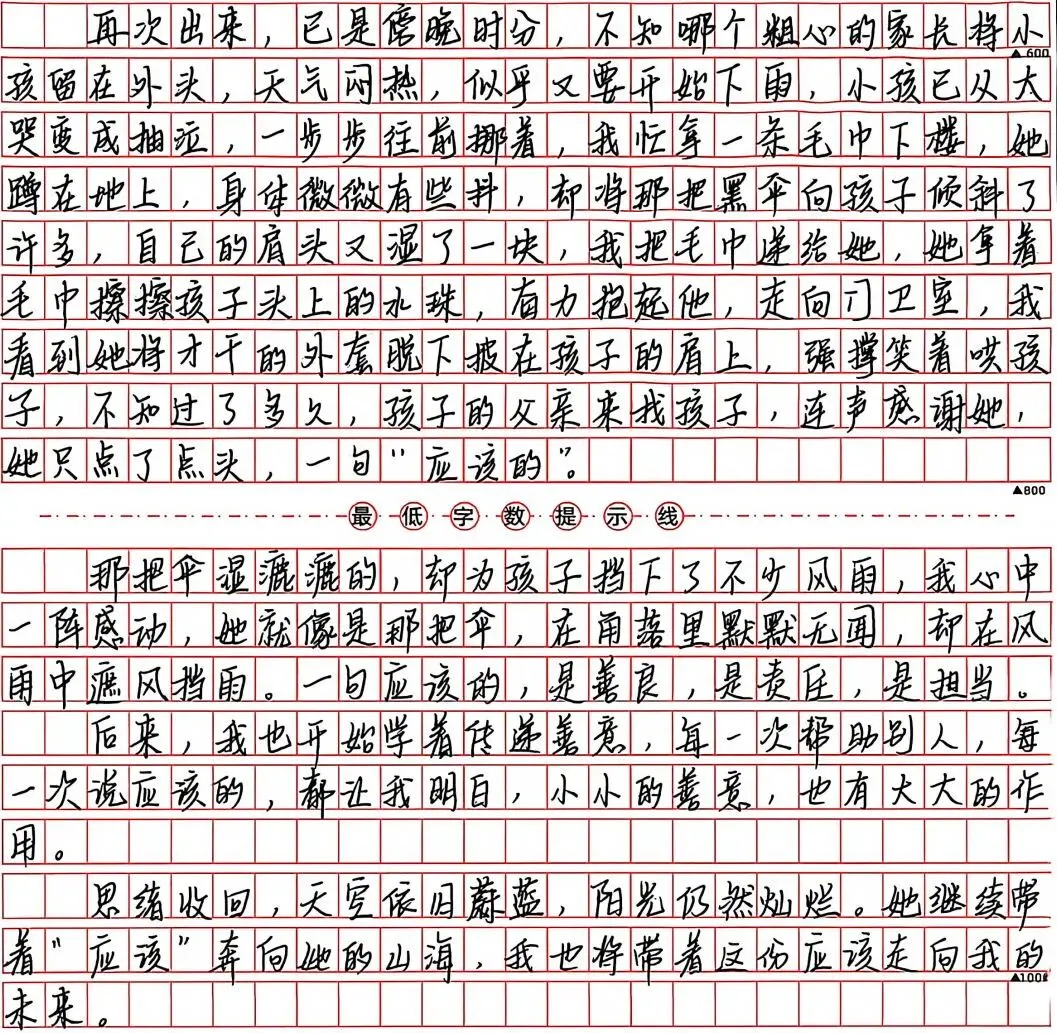 再次出来，已是傍晚时分，不知哪个粗心的家长将小
▲600
孩留在外头，天气闷热，似乎又要开始下雨，小孩已从大
哭变成抽泣，一步步往前挪着，我忙拿一条毛巾下楼，她
蹲在地上，身体微微有些抖，却将那把黑伞向孩子倾斜了
许多，自己的肩头又湿了一块，我把毛巾递给她，她拿着
毛巾擦擦孩子头上的水珠，有力抱起他，走向门卫室，我
看到她将才干的外套脱下披在孩子的肩上，强撑笑着哄孩
子，不知过了多久，孩子的父亲来找孩子，连声感谢她，
她只点了点头，一句“应该的”。
▲800
最低字数提示线
那把伞湿漉漉的，却为孩子挡下了不少风雨，我心中
一阵感动，她就像是那把伞，在角落里默默无闻，却在风
雨中遮风挡雨。一句应该的，是善良，是责任，是担当。
后来，我也开始学着传递善意，每一次帮助别人，每
一次说应该的，都让我明白，小小的善意，也有大大的作
用。
思绪收回，天空依旧蔚蓝，阳光仍然灿烂。她继续带
着“应该”奔向她的山海，我也将带着这份应该走向我的
▲100
未来。